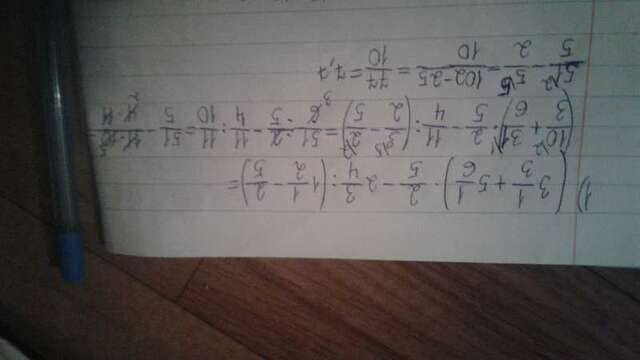 1) (3 1/3 + 5 1/6) · 2/5 - 2 3/4 : (1 1/2 - 2/5) =
(10\2/3 + 31\1/6) · 2/5 - 11/4 : (3\5/2 - 2\2/5) = 51/6 3 · 2/5 - 11/4 : 11/10 = 51/5 - 11·10 5/4·11 2 =
51\2/5 - 5\5/2 = 102-25/10 = 77/10 = 7,7